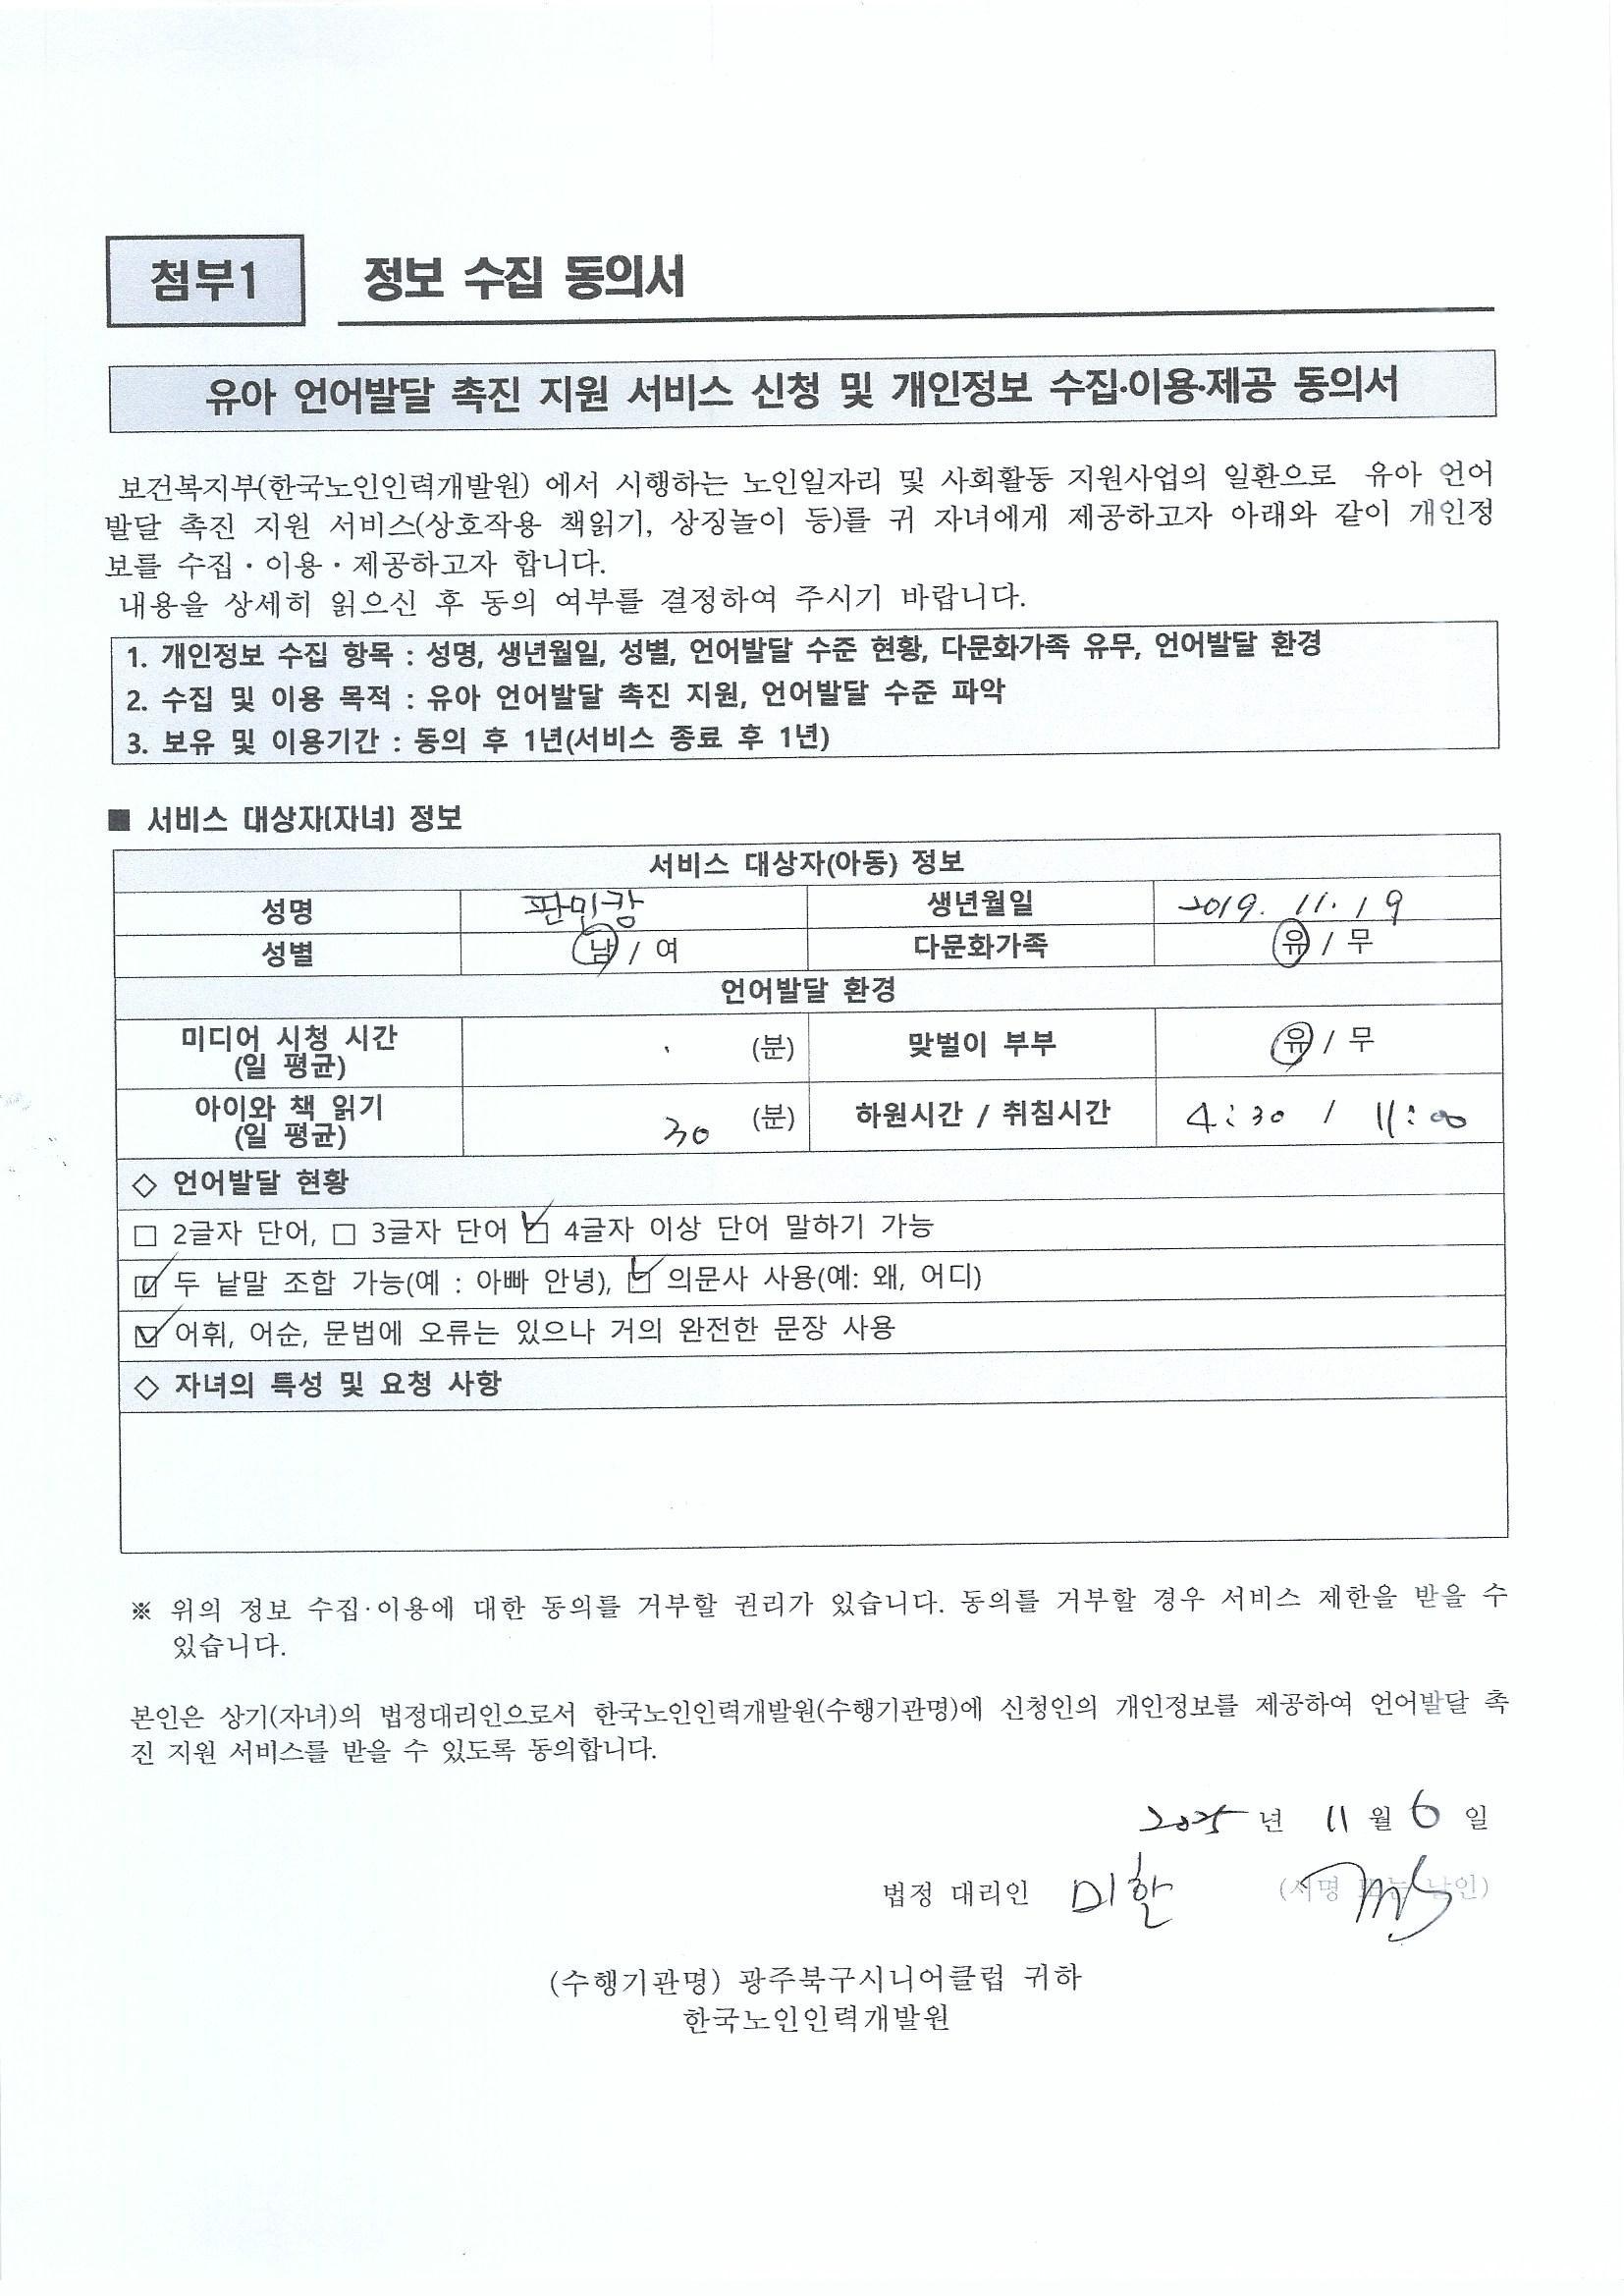 첨부1
정보 수집 동의서
유아 언어발달 촉진 지원 서비스 신청 및 개인정보 수집·이용·제공 동의서
보건복지부(한국노인인력개발원) 에서 시행하는 노인일자리 및 사회활동 지원사업의 일환으로 유아 언어
발달 촉진 지원 서비스(상호작용 책읽기, 상징놀이 등)를 귀 자녀에게 제공하고자 아래와 같이 개인정
보를 수집·이용·제공하고자 합니다.
내용을 상세히 읽으신 후 동의 여부를 결정하여 주시기 바랍니다.
1. 개인정보 수집 항목 : 성명, 생년월일, 성별, 언어발달 수준 현황, 다문화가족 유무, 언어발달 환경
2. 수집 및 이용 목적 : 유아 언어발달 촉진 지원, 언어발달 수준 파악
3. 보유 및 이용기간 : 동의 후 1년(서비스 종료 후 1년)
■ 서비스 대상자(자녀) 정보
서비스 대상자(아동) 정보
성명 판민캉 생년월일 2019. 11. 19
성별 남 / 여 다문화가족 유 / 무
언어발달 환경
미디어 시청 시간 (분) 맞벌이 부부 유 / 무
(일 평균)
아이와 책 읽기 30 (분) 하원시간 / 취침시간 4:30 / 11:00
(일 평균)
◇ 언어발달 현황
□ 2글자 단어, □ 3글자 단어 ☑ 4글자 이상 단어 말하기 가능
☑ 두 낱말 조합 가능(예 : 아빠 안녕), ☑ 의문사 사용(예: 왜, 어디)
☑ 어휘, 어순, 문법에 오류는 있으나 거의 완전한 문장 사용
◇ 자녀의 특성 및 요청 사항
※ 위의 정보 수집·이용에 대한 동의를 거부할 권리가 있습니다. 동의를 거부할 경우 서비스 제한을 받을 수
있습니다.
본인은 상기(자녀)의 법정대리인으로서 한국노인인력개발원(수행기관명)에 신청인의 개인정보를 제공하여 언어발달 촉
진 지원 서비스를 받을 수 있도록 동의합니다.
2025 년 11 월 6 일
법정 대리인 미한 (서명 또는 날인)
(수행기관명) 광주북구시니어클럽 귀하
한국노인인력개발원